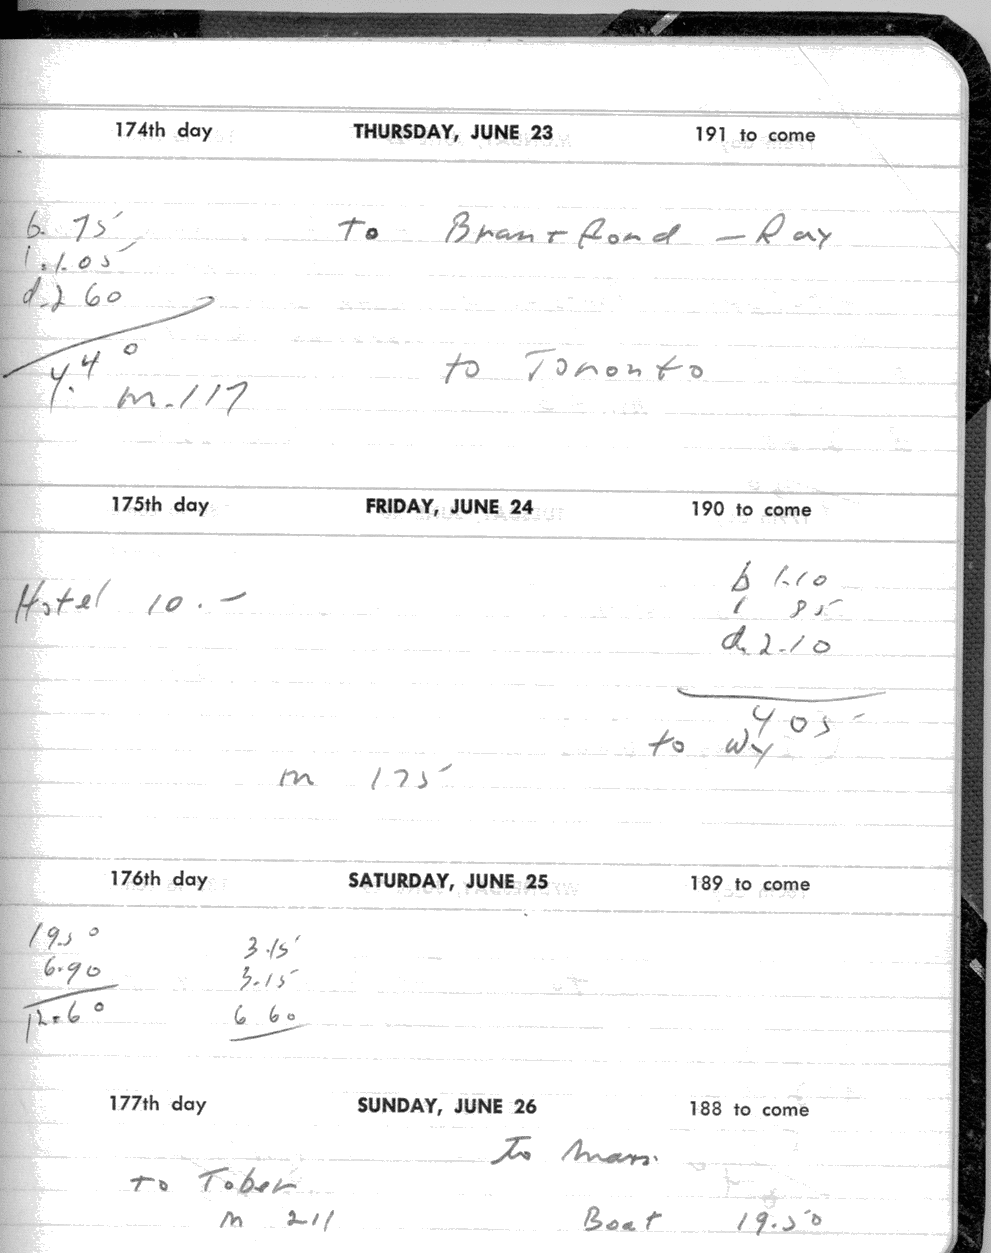 174th day THURSDAY, JUNE 23 191 to come
b. 75 to Brantford - Ray
l. 1.05
d. 2 60
4.40 to Toronto
m. 117
175th day FRIDAY, JUNE 24 190 to come
b 1.10
Hotel 10.- l 85
d. 2.10
4 05
to Wy
m 175
176th day SATURDAY, JUNE 25 189 to come
19.50 3.15
6.90 3.15
12.60 6 60
177th day SUNDAY, JUNE 26 188 to come
to
to Tober
m 211 Boat 19.50